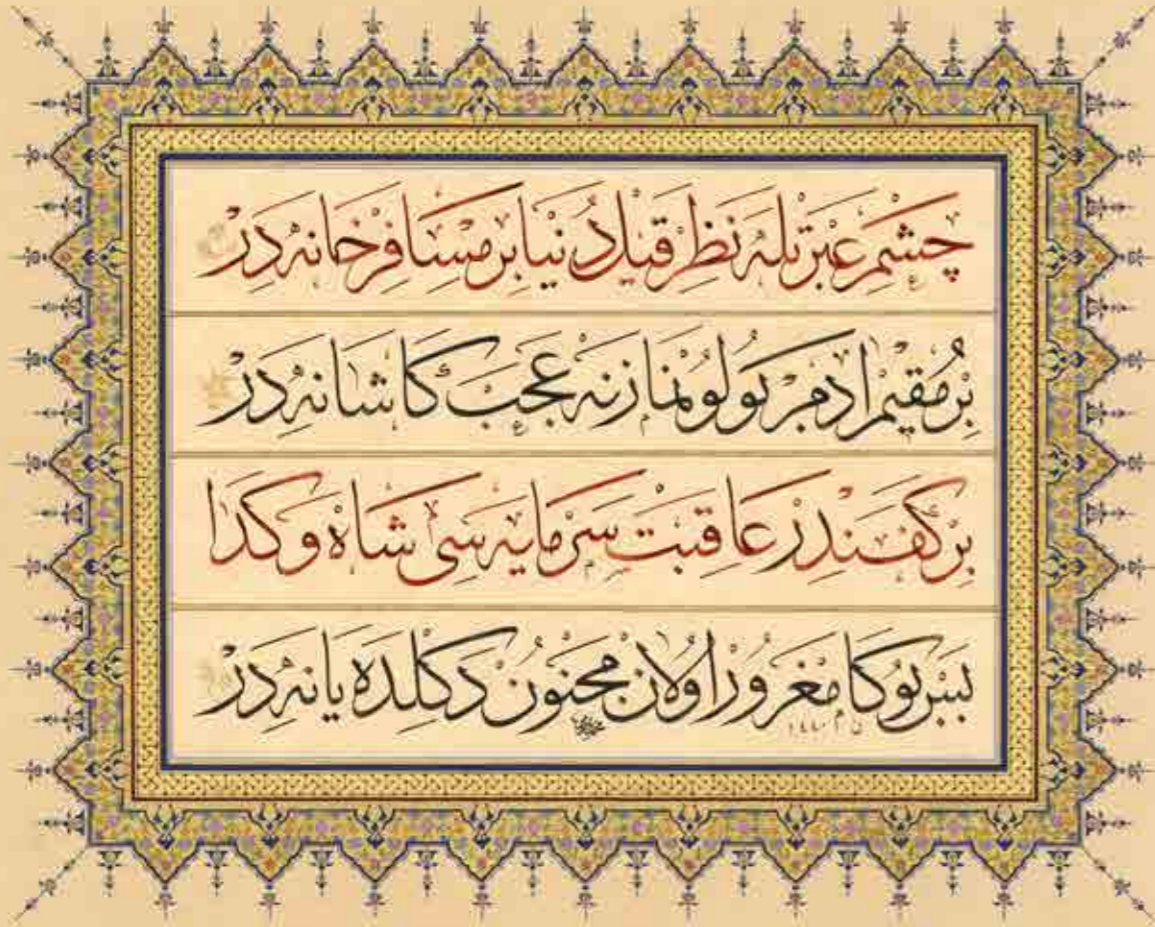 چشم عبرتله نظر قيل دنيا بر مسافرخانه در
بر مقيم ادم بولونماز نه عجب كاشانه در
بر كفندر عاقبت سرمايه سى شاه و كدا
بس بوكا مغرور اولان مجنون دكلده يا نه در
١٤٤٠